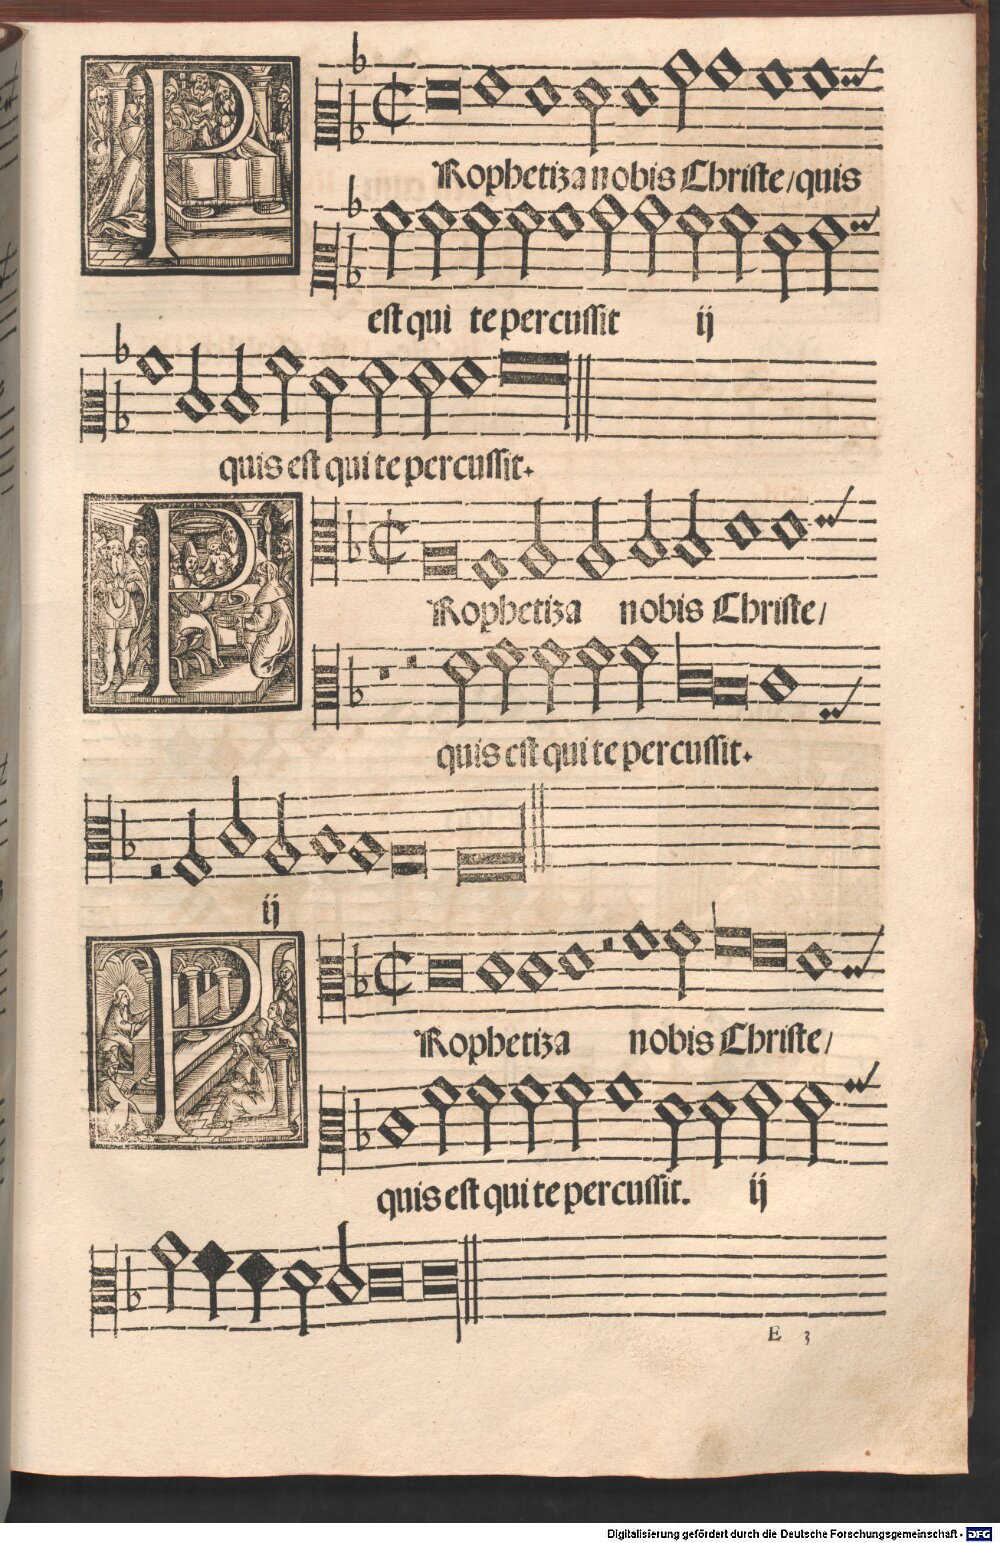 PRophetiza nobis Christe/quis
est qui te percussit ij
quis est qui te percussit.
PRophetiza nobis Christe/
quis est qui te percussit.
ij
PRophetiza nobis Christe/
quis est qui te percussit. ij
E 3
Digitalisierung gefördert durch die Deutsche Forschungsgemeinschaft - DFG